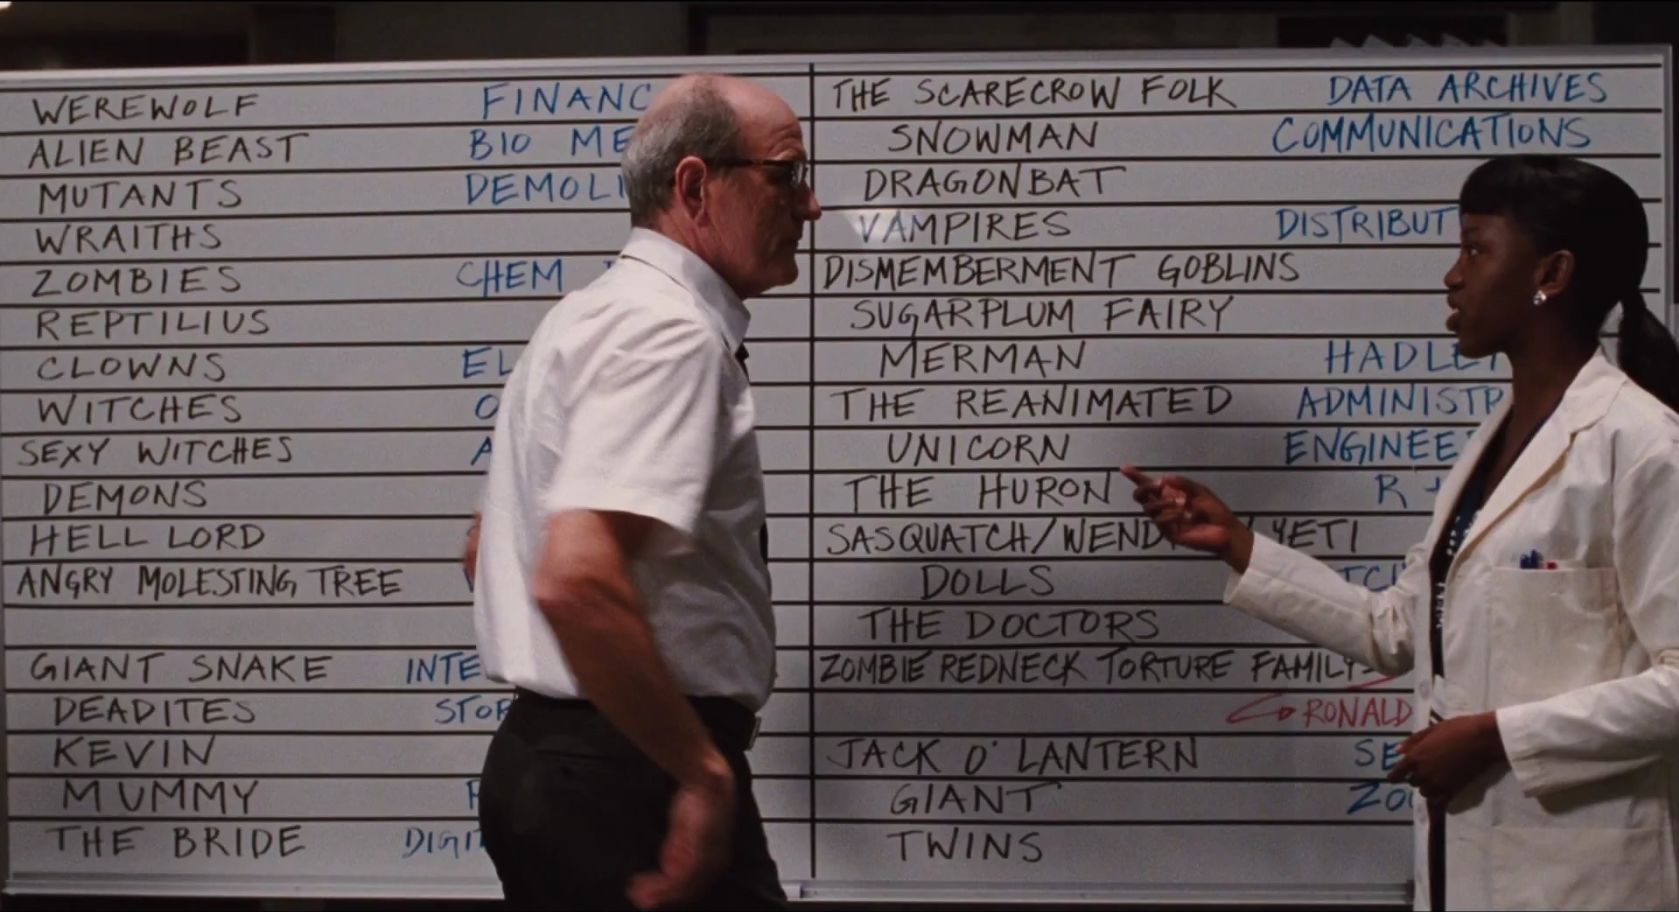 WEREWOLF
ALIEN BEAST BIO
MUTANTS
WRAITHS
ZOMBIES CHEM
REPTILIUS
CLOWNS
WITCHES
SEXY WITCHES
DEMONS
HELL LORD
ANGRY MOLESTING TREE
GIANT SNAKE
DEADITES
KEVIN
MUMMY
THE BRIDE
THE SCARECROW FOLK DATA ARCHIVES
SNOWMAN COMMUNICATIONS
DRAGONBAT
VAMPIRES
DISMEMBERMENT GOBLINS
SUGARPLUM FAIRY
MERMAN
THE REANIMATED
UNICORN
THE HURON
SASQUATCH/ YETI
DOLLS
THE DOCTORS
ZOMBIE REDNECK TORTURE FAMILY
RONALD
JACK O' LANTERN
GIANT
TWINS